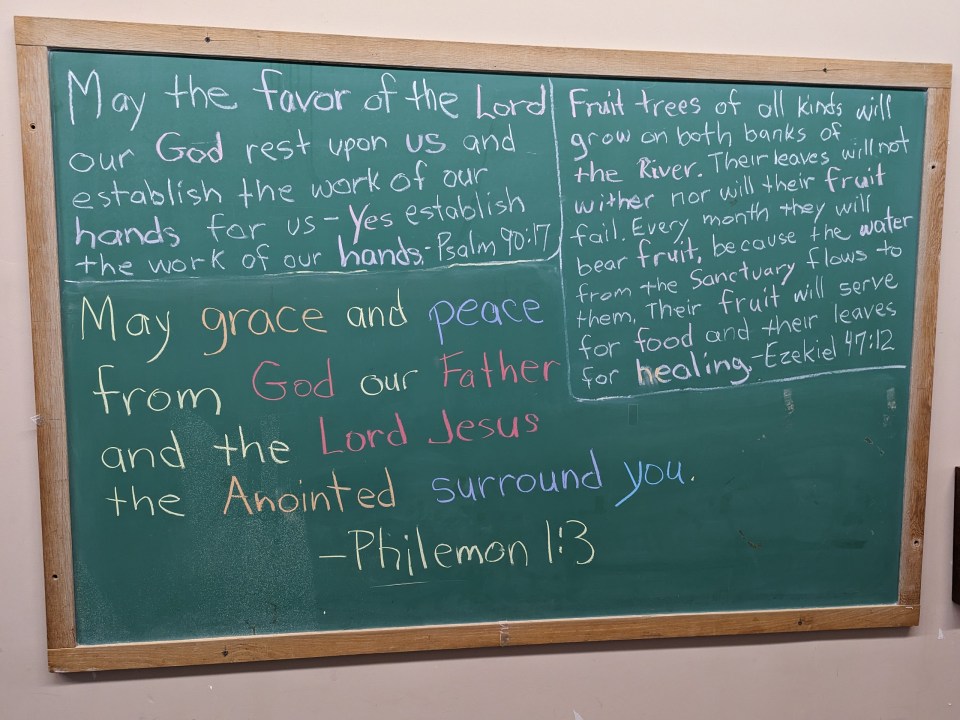 May the favor of the Lord
our God rest upon us and
establish the work of our
hands for us - Yes establish
the work of our hands. - Psalm 90:17
Fruit trees of all kinds will
grow on both banks of
the River. Their leaves will not
wither nor will their fruit
fail. Every month they will
bear fruit, because the water
from the Sanctuary flows to
them. Their fruit will serve
for food and their leaves
for healing. - Ezekiel 47:12
May grace and peace
from God our Father
and the Lord Jesus
the Anointed surround you.
- Philemon 1:3